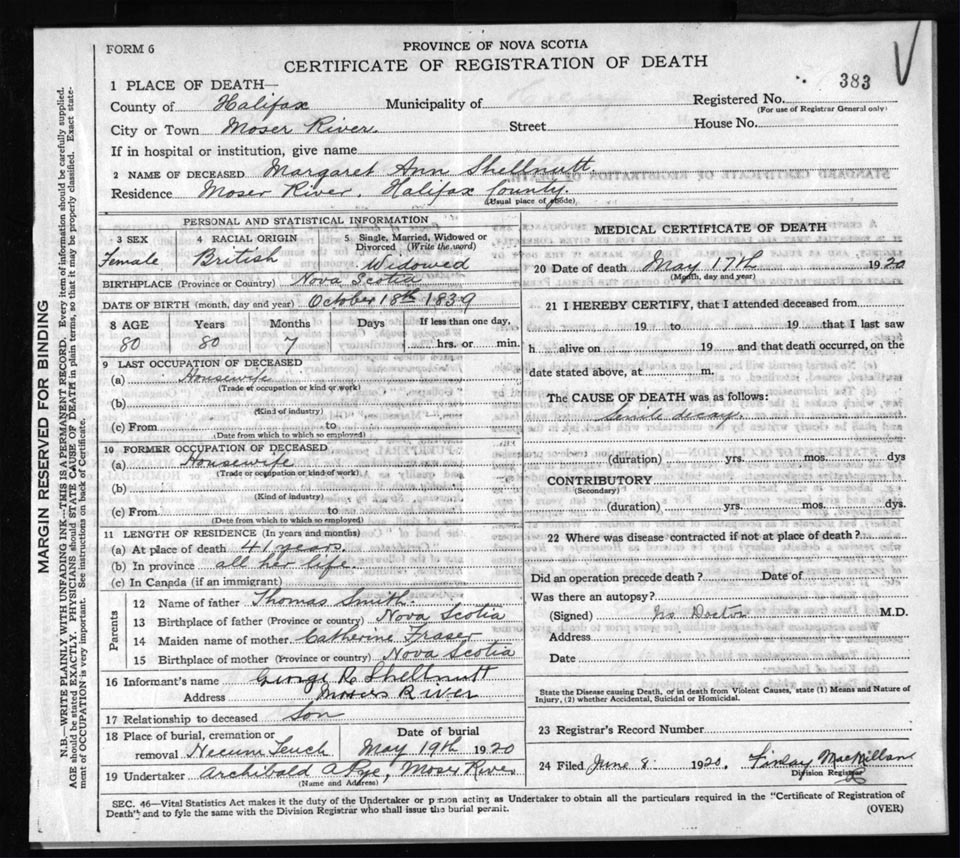 FORM 6
PROVINCE OF NOVA SCOTIA
CERTIFICATE OF REGISTRATION OF DEATH
1 PLACE OF DEATH—
383
County of Halifax Municipality of Registered No.
(For use of Registrar General only)
City or Town Moser River. Street House No.
If in hospital or institution, give name
2 NAME OF DECEASED Margaret Ann Shellnutt.
Residence Moser River, Halifax County.
(Usual place of abode)
PERSONAL AND STATISTICAL INFORMATION
3 SEX 4 RACIAL ORIGIN 5 Single, Married, Widowed or Divorced (Write the word)
Female British Widowed
BIRTHPLACE (Province or Country) Nova Scotia
DATE OF BIRTH (month, day and year) October 18th 1839
8 AGE Years Months Days If less than one day,
80 80 7 hrs. or min.
9 LAST OCCUPATION OF DECEASED
(a) Housewife
(Trade of occupation or kind or work)
(b)
(Kind of industry)
(c) From to
(Date from which to which so employed)
10 FORMER OCCUPATION OF DECEASED
(a) Housewife
(Trade or occupation or kind of work)
(b)
(Kind of Industry)
(c) From to
(Date from which to which so employed)
11 LENGTH OF RESIDENCE (In years and months)
(a) At place of death 41 years.
(b) In province all her life.
(c) In Canada (if an immigrant)
Parents
12 Name of father Thomas Smith.
13 Birthplace of father (Province or country) Nova Scotia
14 Maiden name of mother Catherine Fraser
15 Birthplace of mother (Province or country) Nova Scotia
16 Informant's name George Shellnutt
Address Mosers River
17 Relationship to deceased Son
18 Place of burial, cremation or removal Necum Teuch
Date of burial
May 19th 1920
19 Undertaker Archibald A Pye, Moser River
(Name and Address)
MEDICAL CERTIFICATE OF DEATH
20 Date of death May 17th 1920
(Month, day and year)
21 I HEREBY CERTIFY, that I attended deceased from
19 to 19 that I last saw
h alive on 19 and that death occurred, on the
date stated above, at m.
The CAUSE OF DEATH was as follows:
Senile decay.
(duration) yrs. mos. dys
CONTRIBUTORY
(Secondary)
(duration) yrs. mos. dys.
22 Where was disease contracted if not at place of death?
Did an operation precede death? Date of
Was there an autopsy?
(Signed) No Doctor M.D.
Address
Date
State the Disease causing Death, or in death from Violent Causes, state (1) Means and Nature of
Injury, (2) whether Accidental, Suicidal or Homicidal.
23 Registrar's Record Number
24 Filed June 8 1920, Finlay MacMillan
Division Registrar
SEC. 46—Vital Statistics Act makes it the duty of the Undertaker or person acting as Undertaker to obtain all the particulars required in the "Certificate of Registration of
Death" and to fyle the same with the Division Registrar who shall issue the burial permit.
(OVER)
MARGIN RESERVED FOR BINDING
N.B.—WRITE PLAINLY WITH UNFADING INK—THIS IS A PERMANENT RECORD. Every item of information should be carefully supplied.
AGE should be stated EXACTLY. PHYSICIANS should STATE CAUSE OF DEATH in plain terms, so that it may be properly classified. Exact statement
of OCCUPATION is very important. See instructions on back of Certificate.